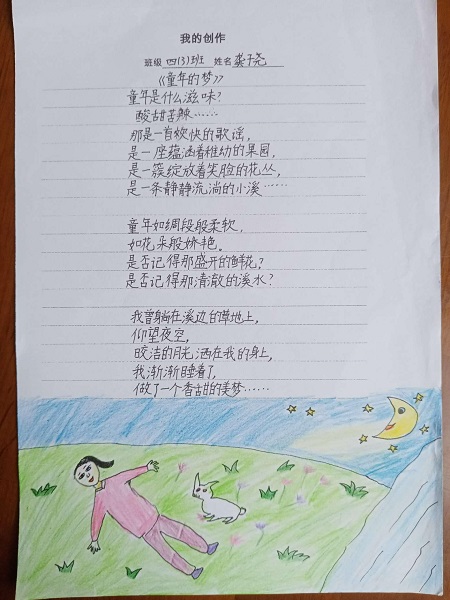 我的创作
班级 四(3)班 姓名 龚子尧
《童年的梦》
童年是什么滋味?
酸甜苦辣……
那是一首欢快的歌谣,
是一座蕴涵着稚幼的果园,
是一簇绽放着笑脸的花丛,
是一条静静流淌的小溪……
童年如绸段般柔软,
如花朵般娇艳。
是否记得那盛开的鲜花?
是否记得那清澈的溪水?
我曾躺在溪边的草地上,
仰望夜空,
皎洁的月光洒在我的身上,
我渐渐睡着了,
做了一个香甜的美梦……